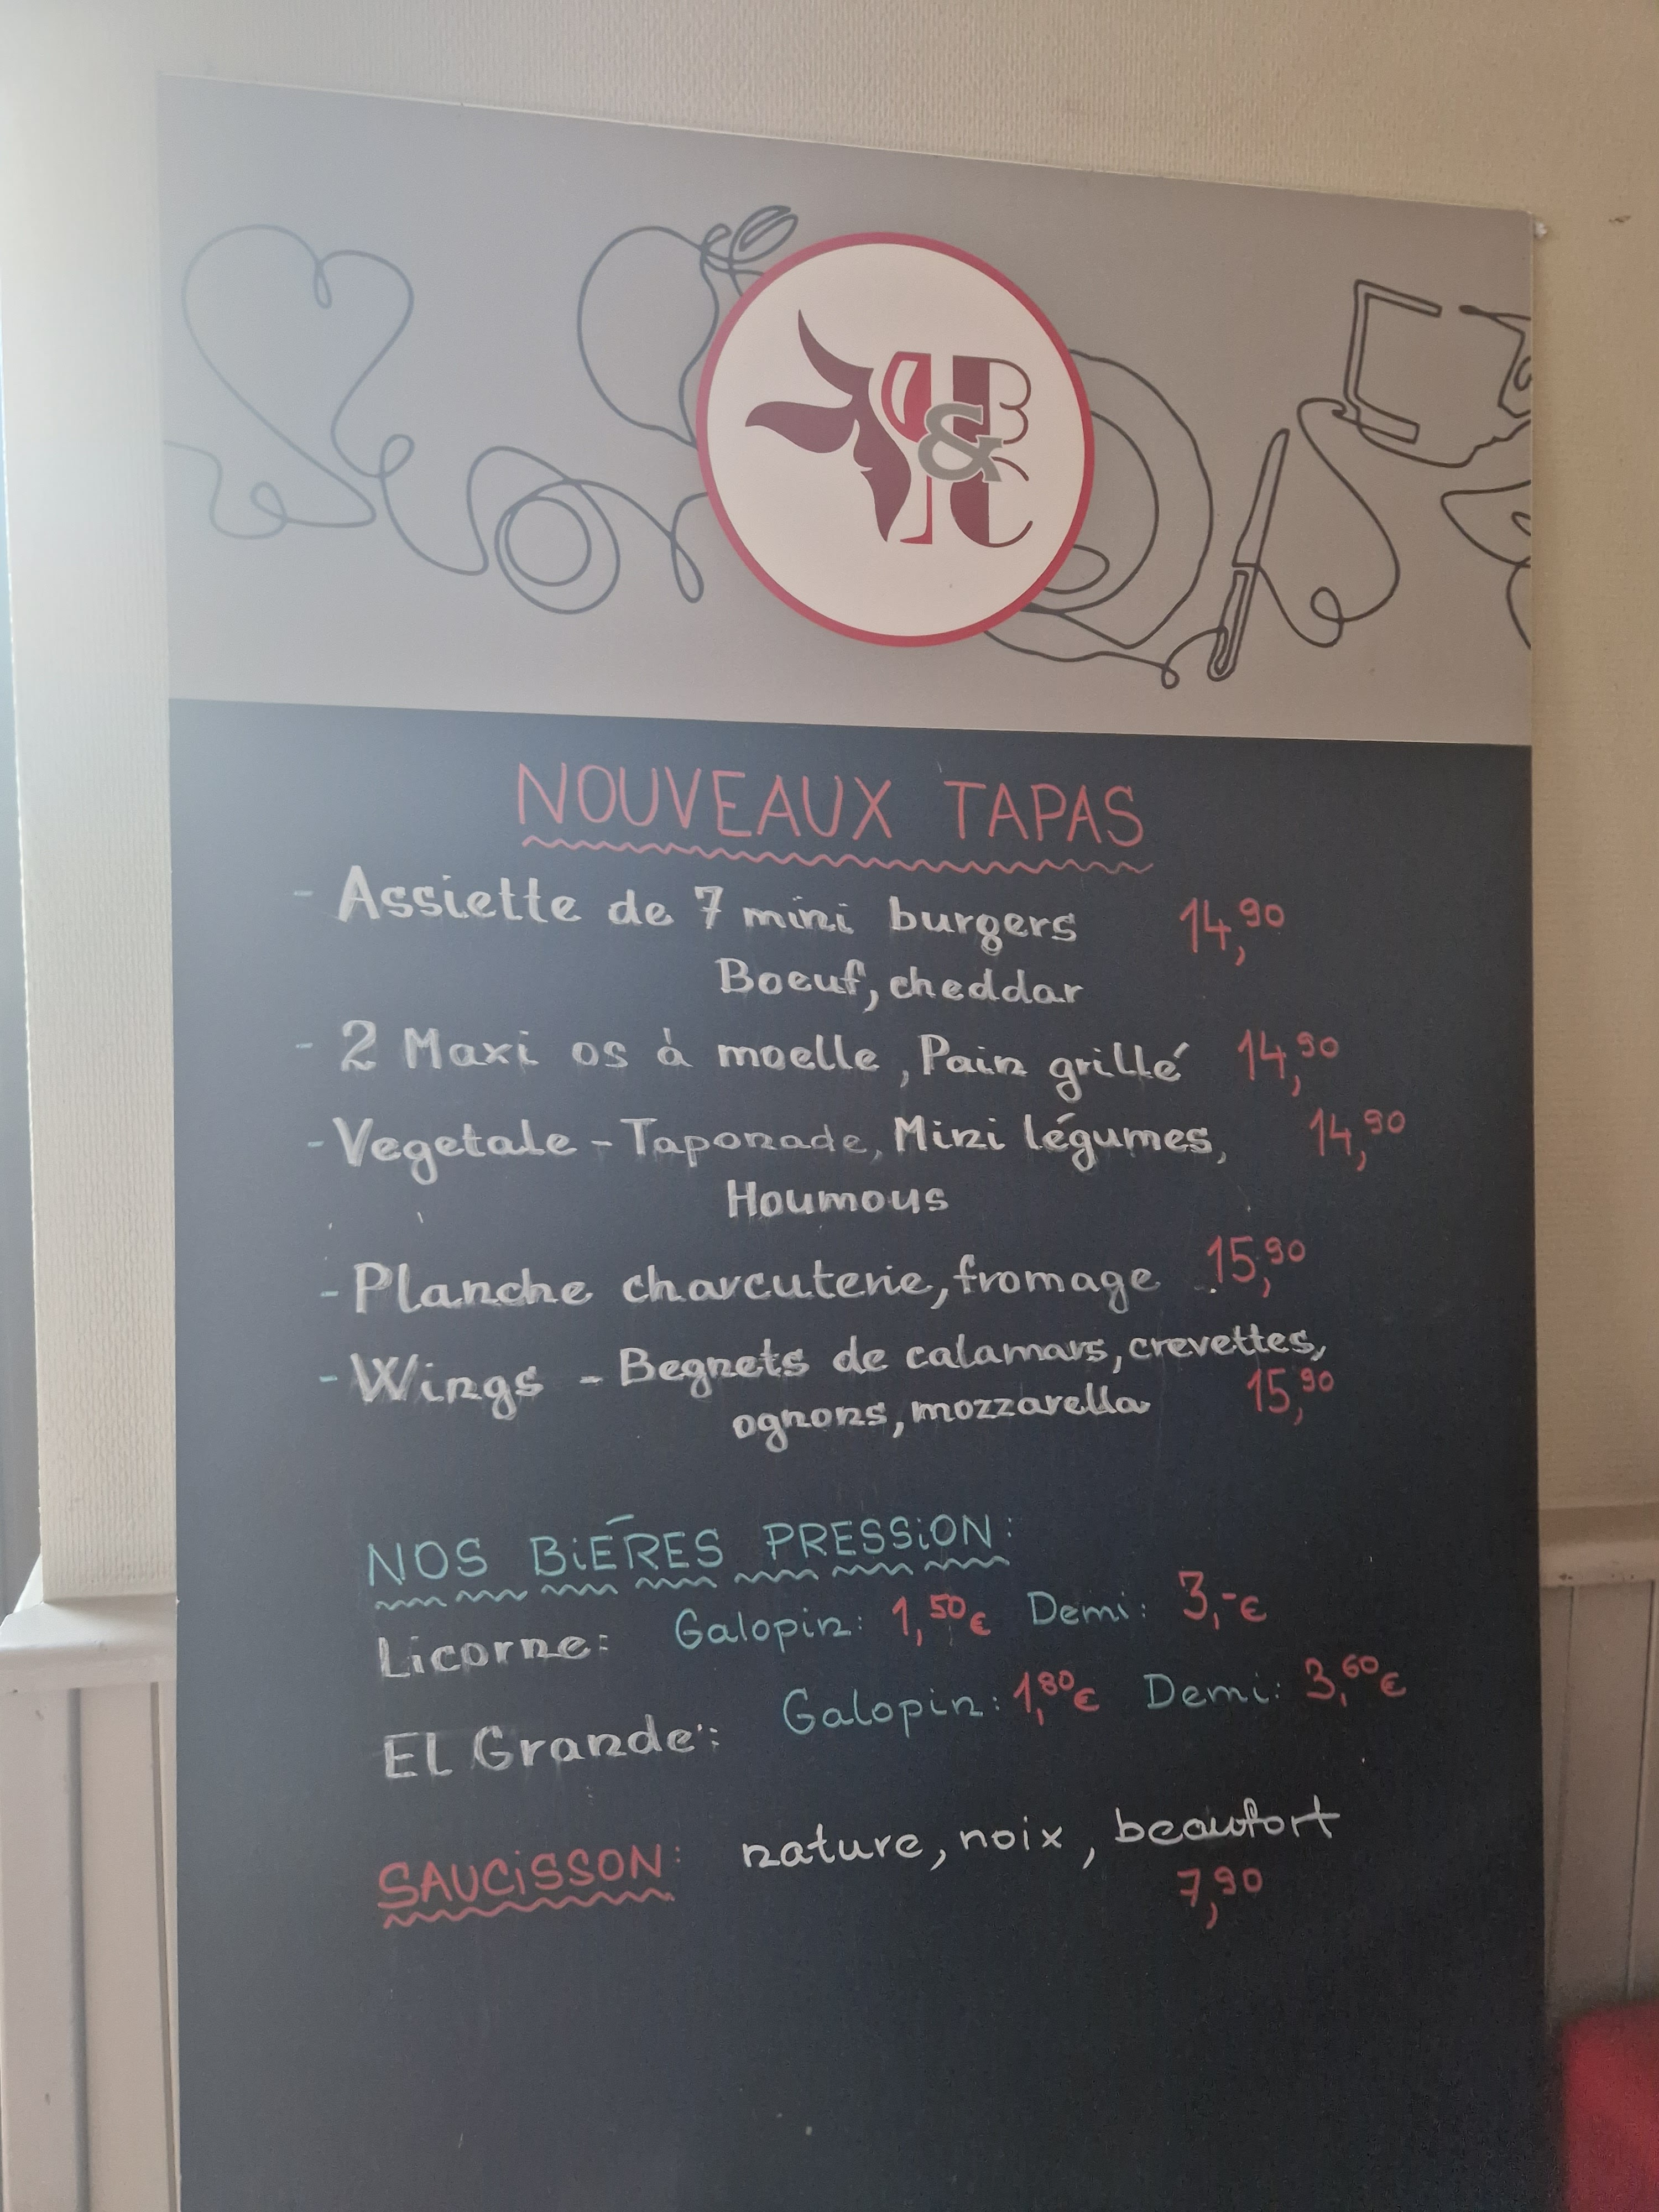 B
&
C
NOUVEAUX TAPAS
- Assiette de 7 mini burgers 14,90
Boeuf, cheddar
- 2 Maxi os à moelle, Pain grillé 14,90
- Vegetale - Taponade, Mini légumes, 14,90
Houmous
- Planche charcuterie, fromage 15,90
- Wings - Begnets de calamars, crevettes,
ognons, mozzarella 15,90
NOS BiÉRES PRESSiON:
Licorne: Galopin: 1,50€ Demi: 3,-€
El Grande: Galopin: 1,80€ Demi: 3,60€
SAUCiSSON: nature, noix, beaufort
7,90